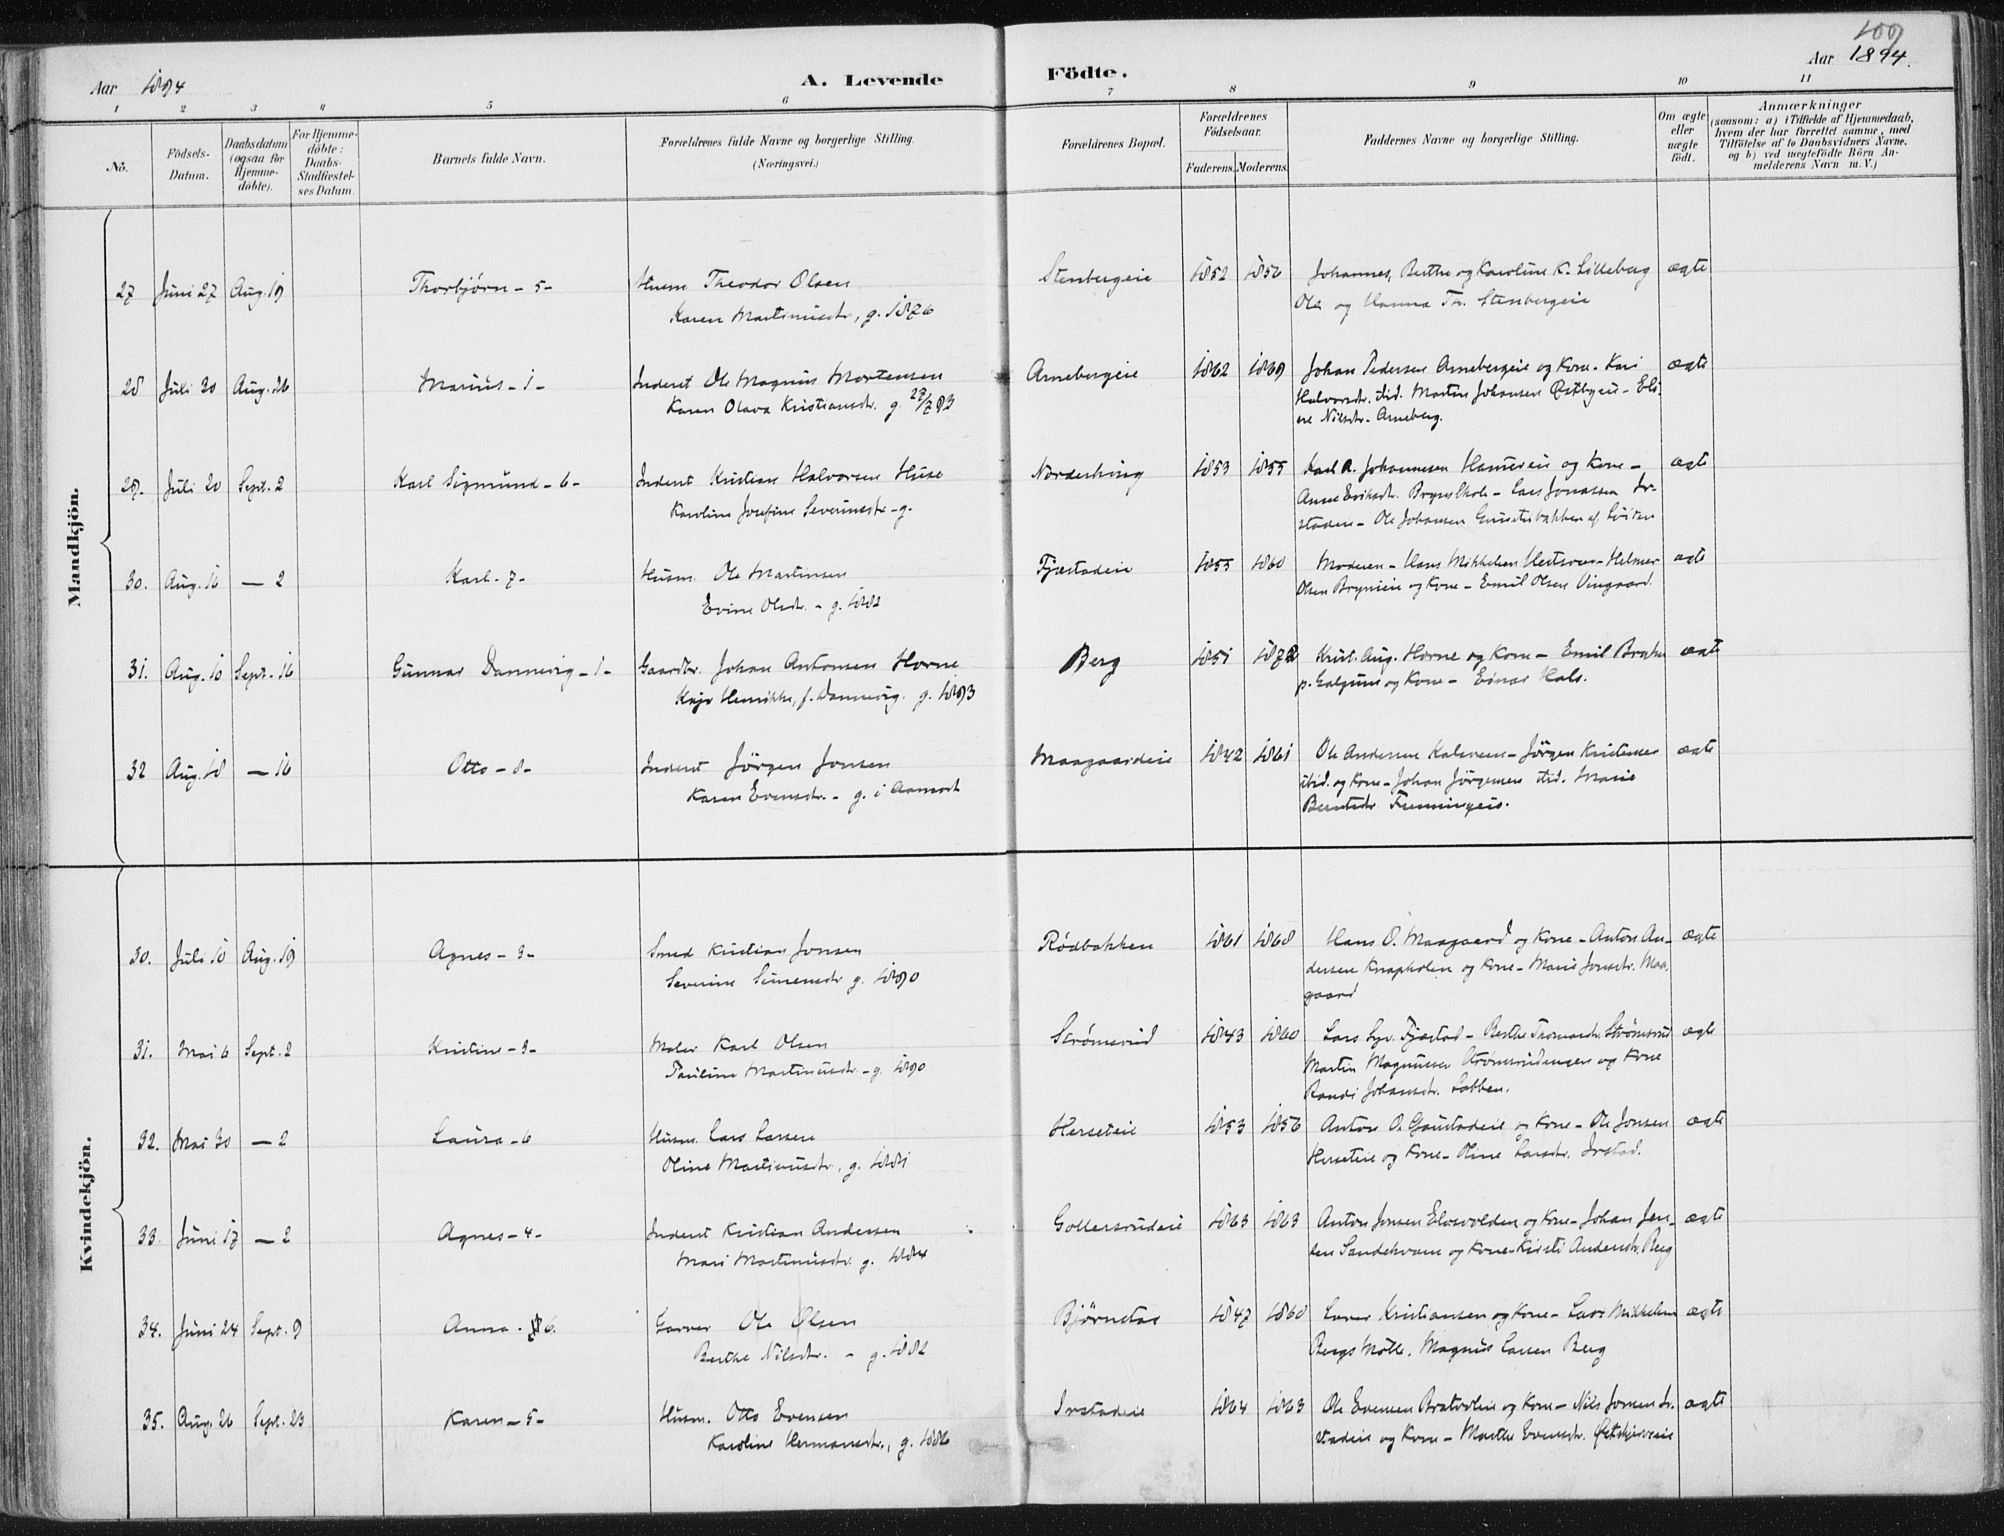 109
Aar 1894
A. Levende Födte.
Aar 1894.
1 2 3 4 5 6 7 8 9 10 11
No. Födsels-Datum. Daabsdatum (ogsaa for Hjemme-döbte). For Hjemme-döbte: Daabs-Stadfæstel-ses Datum. Barnets fulde Navn. Forældrenes fulde Navne og borgerlige Stilling. (Næringsvei.) Forældrenes Bopæl. Forældrenes Födselsaar. Faderens. Moderens. Faddernes Navne og borgerlige Stilling. Om ægte eller uægte födt. Anmærkninger (saasom: a) i Tilfælde af Hjemmedaab, hvem der har forrettet samme, med Tilföielse af to Daabsvidners Navne, og b) ved uægtefödte Börn Anmelderens Navn m. V.)
Mandkjön.
27 Juni 27 Aug. 19 Thorbjørn - 5 - Husm Theodor Olsen Stenbergeie 1852 1856 Johannes, Berthe og Karoline K. Lilleberg ægte
Karen Martinusdr, g. 1876 Ole og Hanna Th. Stenbergeie
28 Juli 30 Aug. 26 Marius - 1 - Inderst Ole Magnus Mortensen Arnebergeie 1862 1869 Johan Pedersen Arnebergeie og Kone - Kari ægte
Karen Olava Kristiansdr. g. 27/7 93 Halvorsdr. itid. Martin Johansen Østbyeie - Eli-
se Nilsdr. Arneberg.
29. Juli 20 Sept. 2 Karl Sigmund - 6 - Inderst Kristian Halvorsen Huse Norderhaug 1853 1855 Karl A. Johannesen Hameie og Kone - ægte
Karoline Josefine Severinsdr - g. Anne Eriksdr. Bryns Skole - Lars Jonassen Ir-
staden - Ole Johansen af Löiten
30. Aug. 16 — 2 Karl - 7 - Husm. Ole Martinsen Fjæstadeie 1855 1860 Moderen - Hans Mikkelsen - Helmer ægte
Evine Olsdr. - g. 1882 Olsen Brynieie og Kone - Emil Olsen Vingaard.
31. Aug. 10 Sept. 16 Gunnar Dannevig - 1 - Gaardbr. Johan Antonsen Horne Berg 1851 1872 Krist. Aug. Horne og Kone - Emil ægte
Kaja Henrikke, f. Dannevig. g. 1893 p. og Kone - Einar Hals.
32 Aug. 18 — 16 Otto - 8 - Inderst Jörgen Jonsen Maagaardeie 1842 1861 Ole Andersen Kalveen - Jörgen Kristensen ægte
Karen Evensdr. - g. i Aamodt itid. og Kone - Johan Jörgensen itid. Marie
Berntsdr
Kvindekjön.
30. Juli 10 Aug. 19 Agnes - 3 - Smed Kristian Jonsen Rödbakken 1861 1868 Hans O. Maagaard og Kone - Anton An- ægte
Severine Simensdr g. 1890 dersen Knapholen og Kone - Marie Jonsdr. Maa-
gaard
31. Mai 6 Sept. 2 Kristine - 3 - Maler Karl Olsen Strömsrud 1843 1860 Lars Syv. Fjæstad - Berthe Thomasdr. Strömsrud ægte
Pauline Martinusdr - g. 1890 Martin Magnussen Strömsrudengen og Kone
Randi Johansdr. Labben.
32. Mai 30 — 2 Laura - 6 Husm. Lars Larsen Herseteie 1853 1856 Anton O. Gaustadeie og Kone - Ole Jonsen ægte
Oline Martinusdr, g. 1881 Herseteie og Kone - Oline Larsdr. Irstad.
33. Juni 17 — 2 Agnes - 4 - Inderst Kristian Andersen Gollersrudeie 1863 1863 Anton Jonsen og Kone - Johan Jen- ægte
Mari Martinusdr. g. 1884 sen Sandekvam og Kone - Kirsti Andersdr. Berg
34. Juni 24 Sept. 9 Anna - 6. Garver Ole Olsen Björnstad 1847 1860 Kristiansen og Kone - Lars Mikkelsen ægte
Berthe Nilsdr. - g. 1882 Bergs Mölle. Magnus Larsen Berg
35. Aug. 26 Sept. 23 Karen - 5 - Husm. Otto Evensen Irstadeie 1864 1863 Ole Evensen Bratvoldeie og Kone - Nils Jonsen Ir- ægte
Karoline Hermansdr., g. 1886 stadeie og Kone - Marthe Evensdr.